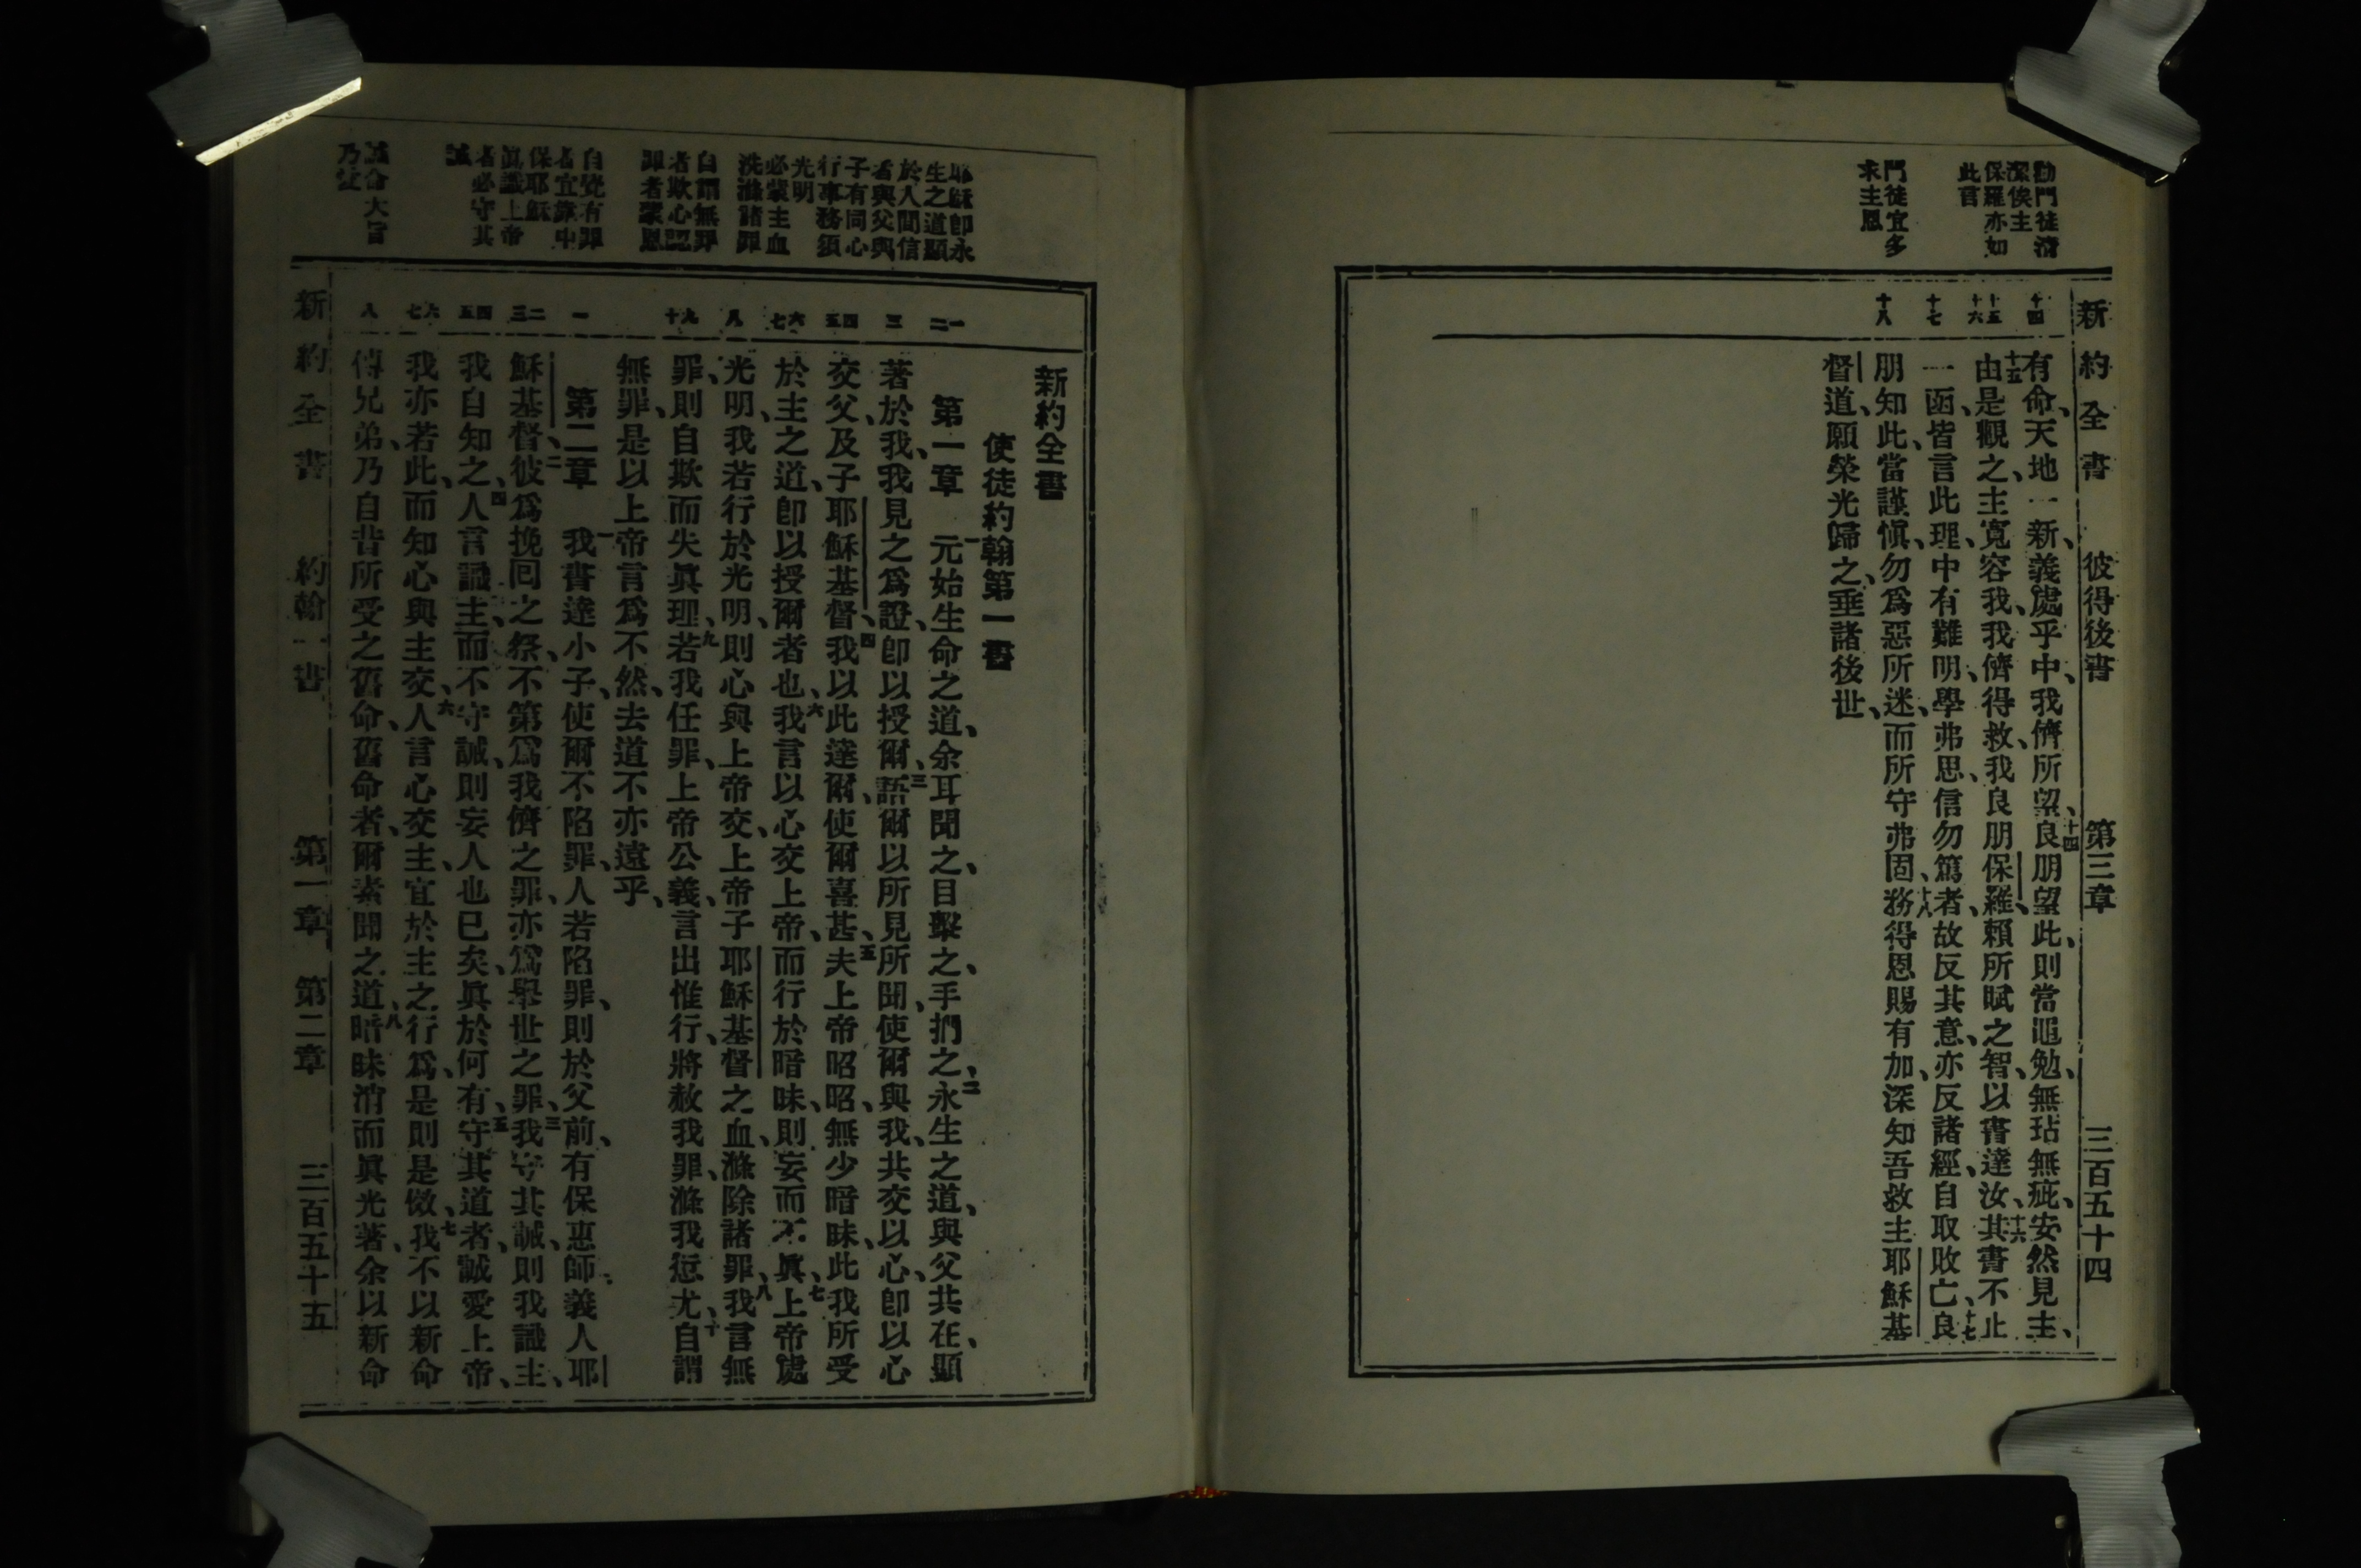 新約全書 彼得後書 第三章 三百五十四
勸門徒清
潔俟主
保羅亦如
此言
門徒宜多
求主恩
十四
十五
十六
十七
十八
有命、天地一新、義處乎中、我儕所望、十四良朋望此、則當黽勉、無玷無疵、安然見主、
十五由是觀之、主寬容我、我儕得救、我良朋保羅、賴所賦之智、以書達汝、十六其書不止
一函、皆言此理、中有難明、學弗思、信勿篤者、故反其意、亦反諸經、自取敗亡、十七良
朋知此、當謹愼、勿爲惡所迷、而所守弗固、十八務得恩賜有加、深知吾救主耶穌基
督道、願榮光歸之、垂諸後世、
耶穌卽永
生之道顯
於人間信
者與父與
子有同心
行事務須
光明
必蒙主血
洗滌諸罪
自謂無罪
者欺心認
罪者蒙恩
自覺有罪
者宜靠中
保耶穌
眞識上帝
者必守其
誡
誡命大旨
一
二
三
四
五
六
七
八
九
十
一
二
三
四
五
六
七
八
新約全書
使徒約翰第一書
第一章 一元始生命之道、余耳聞之、目擊之、手捫之、二永生之道、與父共在、顯
著於我、我見之爲證、卽以授爾、三語爾以所見所聞、使爾與我、共交以心、卽以心
交父、及子耶穌基督、四我以此達爾、使爾喜甚、五夫上帝昭昭、無少暗昧、此我所受
於主之道、卽以授爾者也、六我言以心交上帝、而行於暗昧、則妄而不眞、七上帝處
光明、我若行於光明、則心與上帝交、上帝子耶穌基督之血、滌除諸罪、八我言無
罪、則自欺而失眞理、九若我任罪、上帝公義、言出惟行、將赦我罪、滌我愆尤、十自謂
無罪、是以上帝言爲不然、去道不亦遠乎、
第二章 一我書達小子、使爾不陷罪、人若陷罪、則於父前、有保惠師、義人耶
穌基督、二彼爲挽回之祭、不第爲我儕之罪、亦爲舉世之罪、三我守其誡、則我識主、
我自知之、四人言識主、而不守誡、則妄人也已矣、眞於何有、五守其道者、誠愛上帝、
我亦若此、而知心與主交、六人言心交主、宜於主之行爲、是則是傚、七我不以新命
傳兄弟、乃自昔所受之舊命、舊命者、爾素聞之道、八暗昧消而眞光著、余以新命
新約全書 約翰一書 第一章 第二章 三百五十五